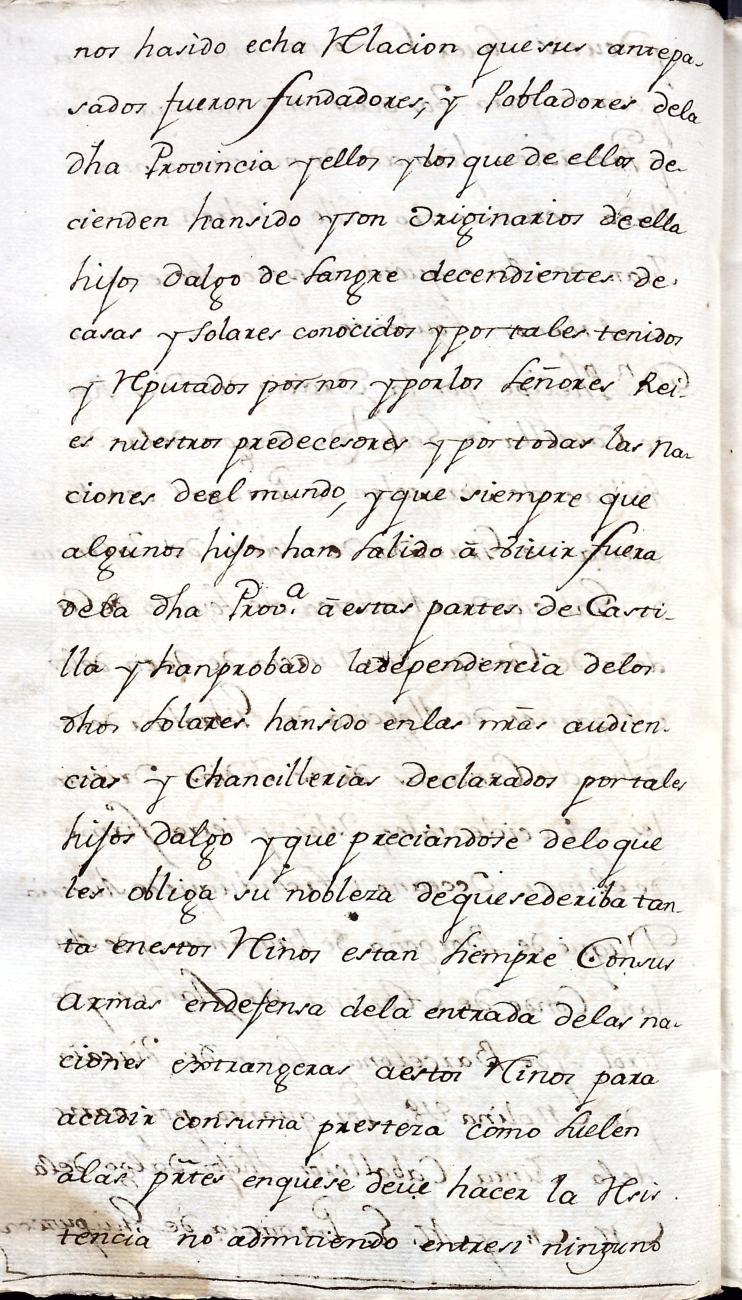 nos hasido echa Relacion quesus antepa-
sados fueron fundadores, y Pobladores dela
dha Provincia yellos ylos que de ellos de-
cienden hansido yson Originarios deella
hijos dalgo de sangre decendientes de
casas y solares conocidos yportales tenidos
y Reputados por nos yporlos señores Rei-
es nuestros predecesores yportodas las na-
ciones deel mundo, yque siempre que
algunos hijos han salido á vivir fuera
dela dha Prov.ª á estas partes de Casti-
lla y hanprobado ladependencia delos
dhos solares hansido enlas nrãs audien-
cias y Chancillerias declarados portales
hijos dalgo yque preciandose deloque
les obliga su nobleza dequesederiba tan-
ta enestos Reinos estan siempre Consus
armas endefensa dela entrada delas na-
ciones extrangeras aestos Reinos para
acudir consuma presteza como suelen
alas prtes enquese deve hacer la Resis-
tencia no admitiendo entresi ninguno